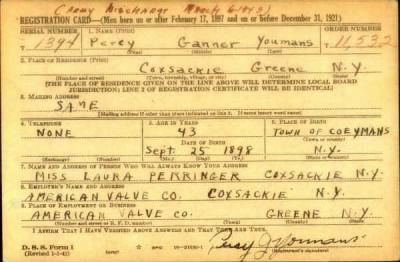 (Army Discharge March 6-1943)
REGISTRATION CARD—(Men born on or after February 17, 1897 and on or before December 31, 1921)
SERIAL NUMBER 1. NAME (Print) ORDER NUMBER
T 1394 Percy Ganner Youmans 11,532
(First) (Middle) (Last)
2. PLACE OF RESIDENCE (Print)
Coxsackie Greene N.Y.
(Number and street) (Town, township, village, or city) (County) (State)
[THE PLACE OF RESIDENCE GIVEN ON THE LINE ABOVE WILL DETERMINE LOCAL BOARD
JURISDICTION; LINE 2 OF REGISTRATION CERTIFICATE WILL BE IDENTICAL]
3. MAILING ADDRESS
SAME
[Mailing address if other than place indicated on line 2. If same insert word same]
4. TELEPHONE 5. AGE IN YEARS 6. PLACE OF BIRTH
NONE 43 TOWN OF COEYMANS
DATE OF BIRTH (Town or county)
Sept. 25 1898 N.Y.
(Exchange) (Number) (Mo.) (Day) (Yr.) (State or country)
7. NAME AND ADDRESS OF PERSON WHO WILL ALWAYS KNOW YOUR ADDRESS
MISS LAURA PERRINGER COXSACKIE N.Y.
8. EMPLOYER'S NAME AND ADDRESS
AMERICAN VALVE CO. COXSACKIE N.Y.
9. PLACE OF EMPLOYMENT OR BUSINESS
AMERICAN VALVE CO. GREENE N.Y.
(Number and street or R. F. D. number) (Town) (County) (State)
I AFFIRM THAT I HAVE VERIFIED ABOVE ANSWERS AND THAT THEY ARE TRUE.
D. S. S. Form 1
(Revised 1-1-42) Percy G Youmans